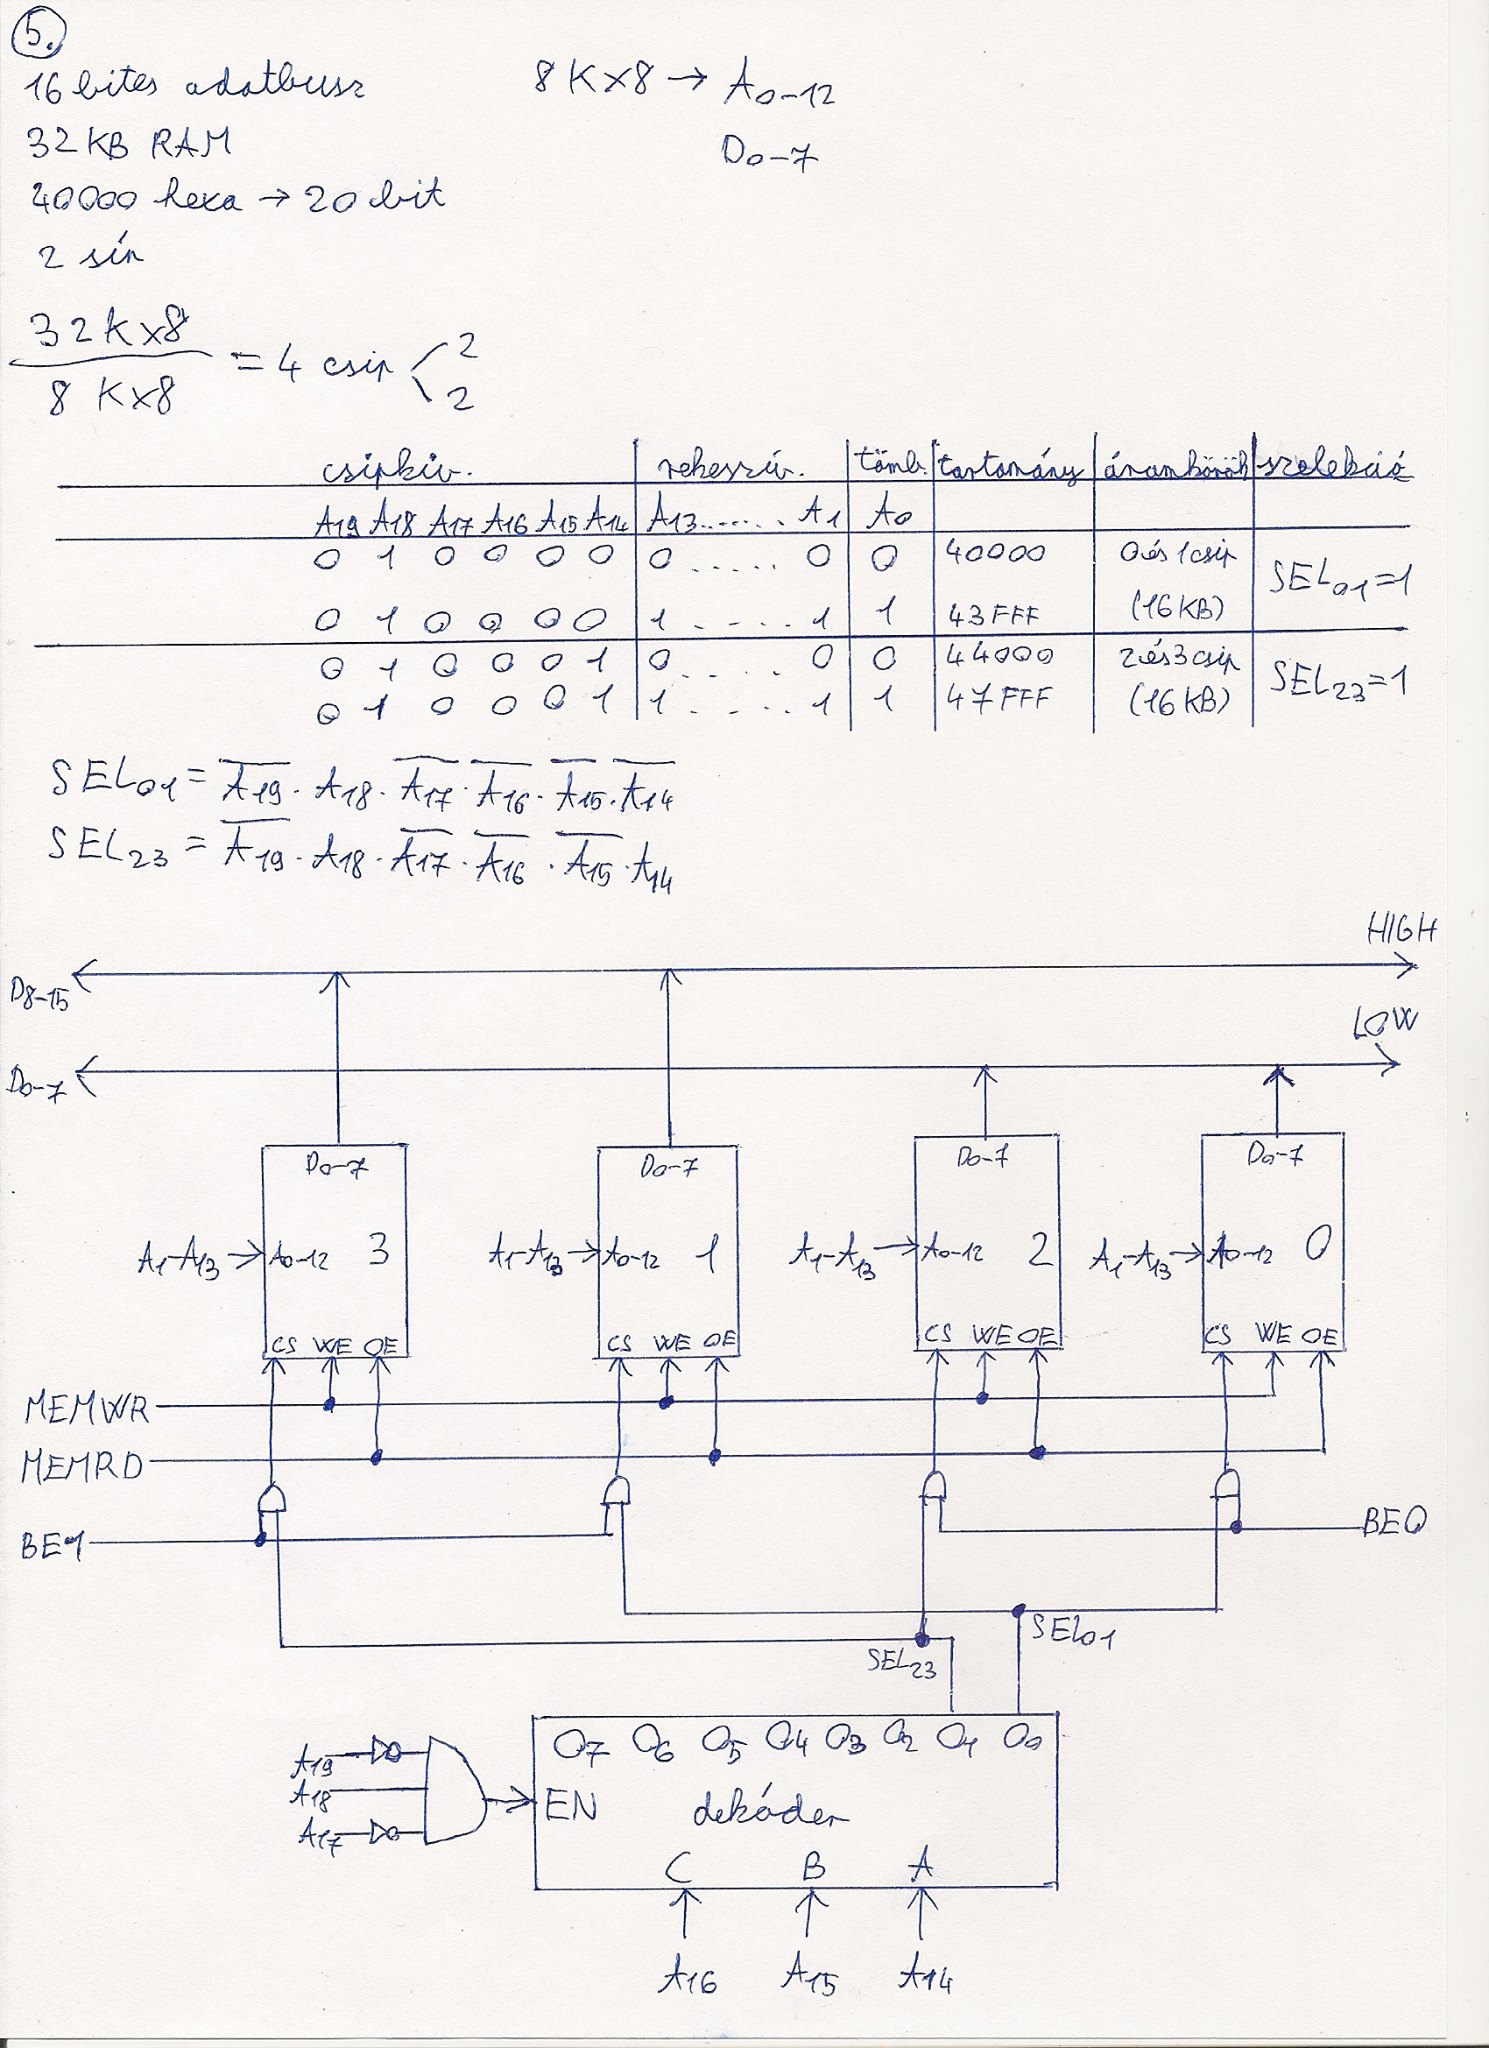 5.
16 bites adatbusz
8K×8 → A0-12
32KB RAM
D0-7
40000 hexa → 20 bit
2 sín
32K×8
8K×8
= 4 csip < 2
2
csipkiv. rekeszív. tömb. tartomány áramkörök szelekció
A19 A18 A17 A16 A15 A14 A13....... A1 A0
0 1 0 0 0 0 0 ..... 0 0 40000 0 és 1 csip SEL01=1
0 1 0 0 0 0 1 ..... 1 1 43FFF (16KB)
0 1 0 0 0 1 0 ..... 0 0 44000 2 és 3 csip SEL23=1
0 1 0 0 0 1 1 ..... 1 1 47FFF (16KB)
SEL01 = A̅1̅9̅ · A18 · A̅1̅7̅ · A̅1̅6̅ · A̅1̅5̅ · A̅1̅4̅
SEL23 = A̅1̅9̅ · A18 · A̅1̅7̅ · A̅1̅6̅ · A̅1̅5̅ · A14
HIGH
D8-15
LOW
D0-7
D0-7 D0-7 D0-7 D0-7
A1-A13 A0-12 3 A1-A13 A0-12 1 A1-A13 A0-12 2 A1-A13 A0-12 0
CS WE OE CS WE OE CS WE OE CS WE OE
MEMWR
MEMRD
BE1
BE0
SEL23 SEL01
O7 O6 O5 O4 O3 O2 O1 O0
A19
A18
A17
EN dekóder
C B A
A16 A15 A14